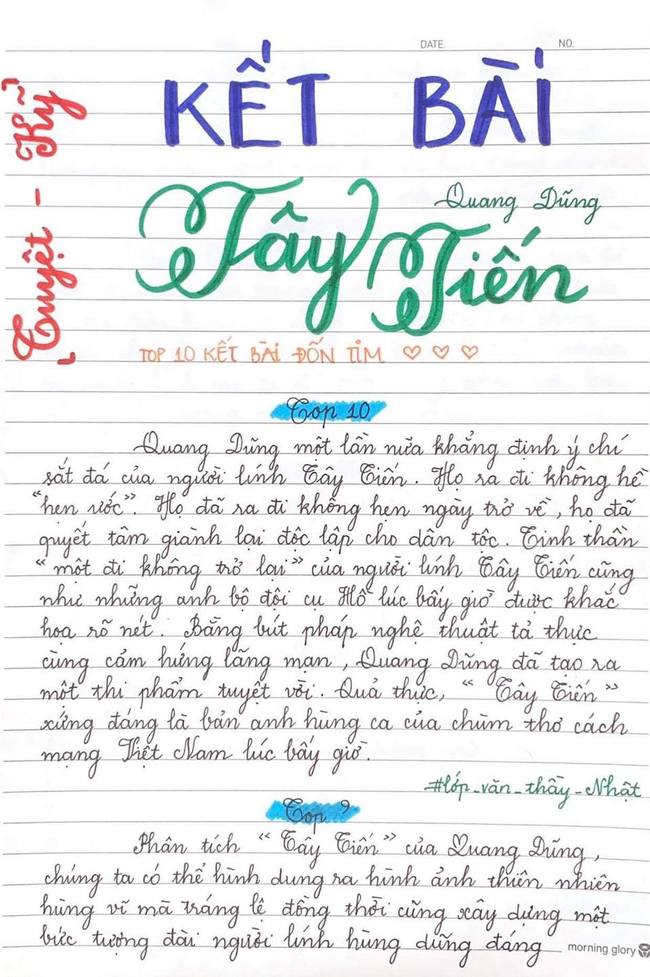 DATE. NO.
Tuyệt - Kỹ
KẾT BÀI
Quang Dũng
Tây Tiến
TOP 10 KẾT BÀI ĐỐN TIM ♡ ♡ ♡
Top 10
Quang Dũng một lần nữa khẳng định ý chí
sắt đá của người lính Tây Tiến. Họ ra đi không hề
“hẹn ước”. Họ đã ra đi không hẹn ngày trở về, họ đã
quyết tâm giành lại độc lập cho dân tộc. Tinh thần
“một đi không trở lại” của người lính Tây Tiến cũng
như những anh bộ đội cụ Hồ lúc bấy giờ được khắc
họa rõ nét. Bằng bút pháp nghệ thuật tả thực
cùng cảm hứng lãng mạn, Quang Dũng đã tạo ra
một thi phẩm tuyệt vời. Quả thực, “Tây Tiến”
xứng đáng là bản anh hùng ca của chùm thơ cách
mạng Việt Nam lúc bấy giờ.
#lớp_văn_thầy_Nhật
Top 9
Phân tích “Tây Tiến” của Quang Dũng,
chúng ta có thể hình dung ra hình ảnh thiên nhiên
hùng vĩ mà tráng lệ đồng thời cũng xây dựng một
bức tượng đài người lính hùng dũng đáng
morning glory